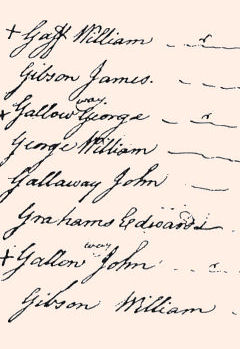 + Gaff William r
Gibson James.
+ Galloway George r
George William
Gallaway John
Grahams Edward
+ Galloway John r
Gibson William